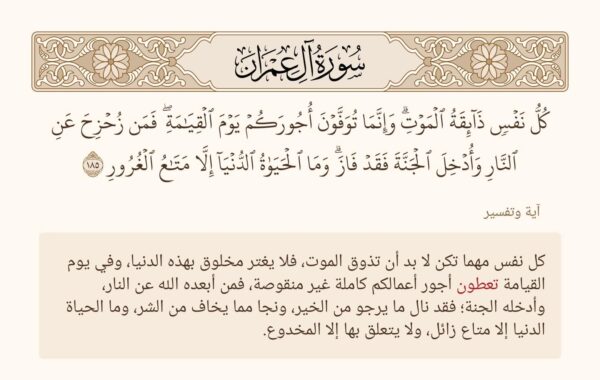 سُورَةُ آلِ عِمۡرَان
كُلُّ نَفۡسٖ ذَآئِقَةُ ٱلۡمَوۡتِۗ وَإِنَّمَا تُوَفَّوۡنَ أُجُورَكُمۡ يَوۡمَ ٱلۡقِيَٰمَةِۖ فَمَن زُحۡزِحَ عَنِ
ٱلنَّارِ وَأُدۡخِلَ ٱلۡجَنَّةَ فَقَدۡ فَازَۗ وَمَا ٱلۡحَيَوٰةُ ٱلدُّنۡيَآ إِلَّا مَتَٰعُ ٱلۡغُرُورِ ١٨٥
آية وتفسير
كل نفس مهما تكن لا بد أن تذوق الموت، فلا يغتر مخلوق بهذه الدنيا، وفي يوم
القيامة تعطون أجور أعمالكم كاملة غير منقوصة، فمن أبعده الله عن النار،
وأدخله الجنة؛ فقد نال ما يرجو من الخير، ونجا مما يخاف من الشر، وما الحياة
الدنيا إلا متاع زائل، ولا يتعلق بها إلا المخدوع.